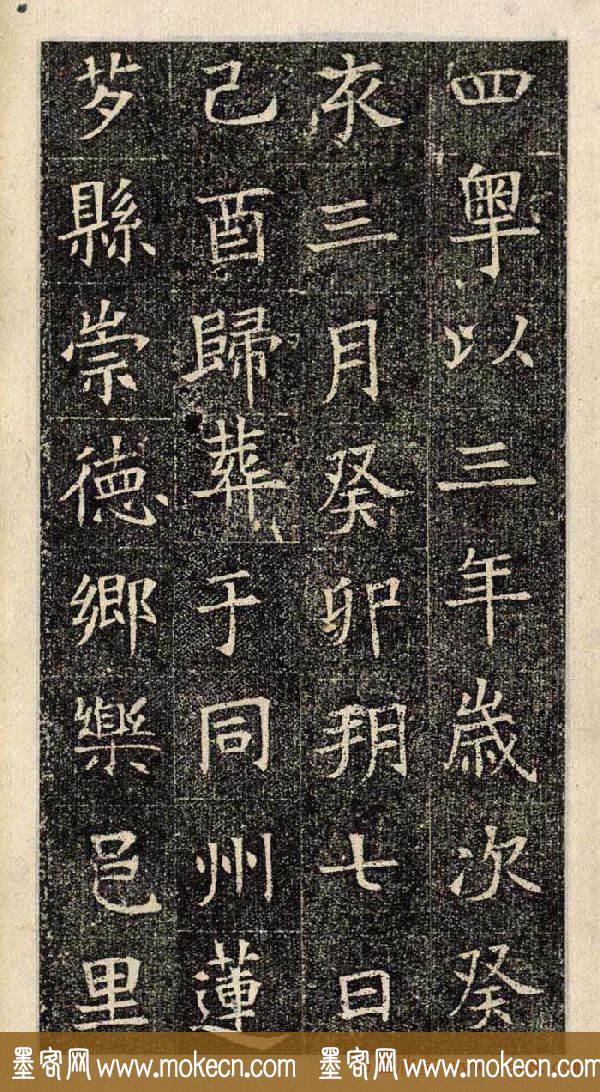 四粤以三年歲次癸
亥三月癸卯朔七日
己酉歸葬于同州蓮
芍縣崇德鄉樂邑里
墨客网 www.mokecn.com 墨客网 www.mokecn.com